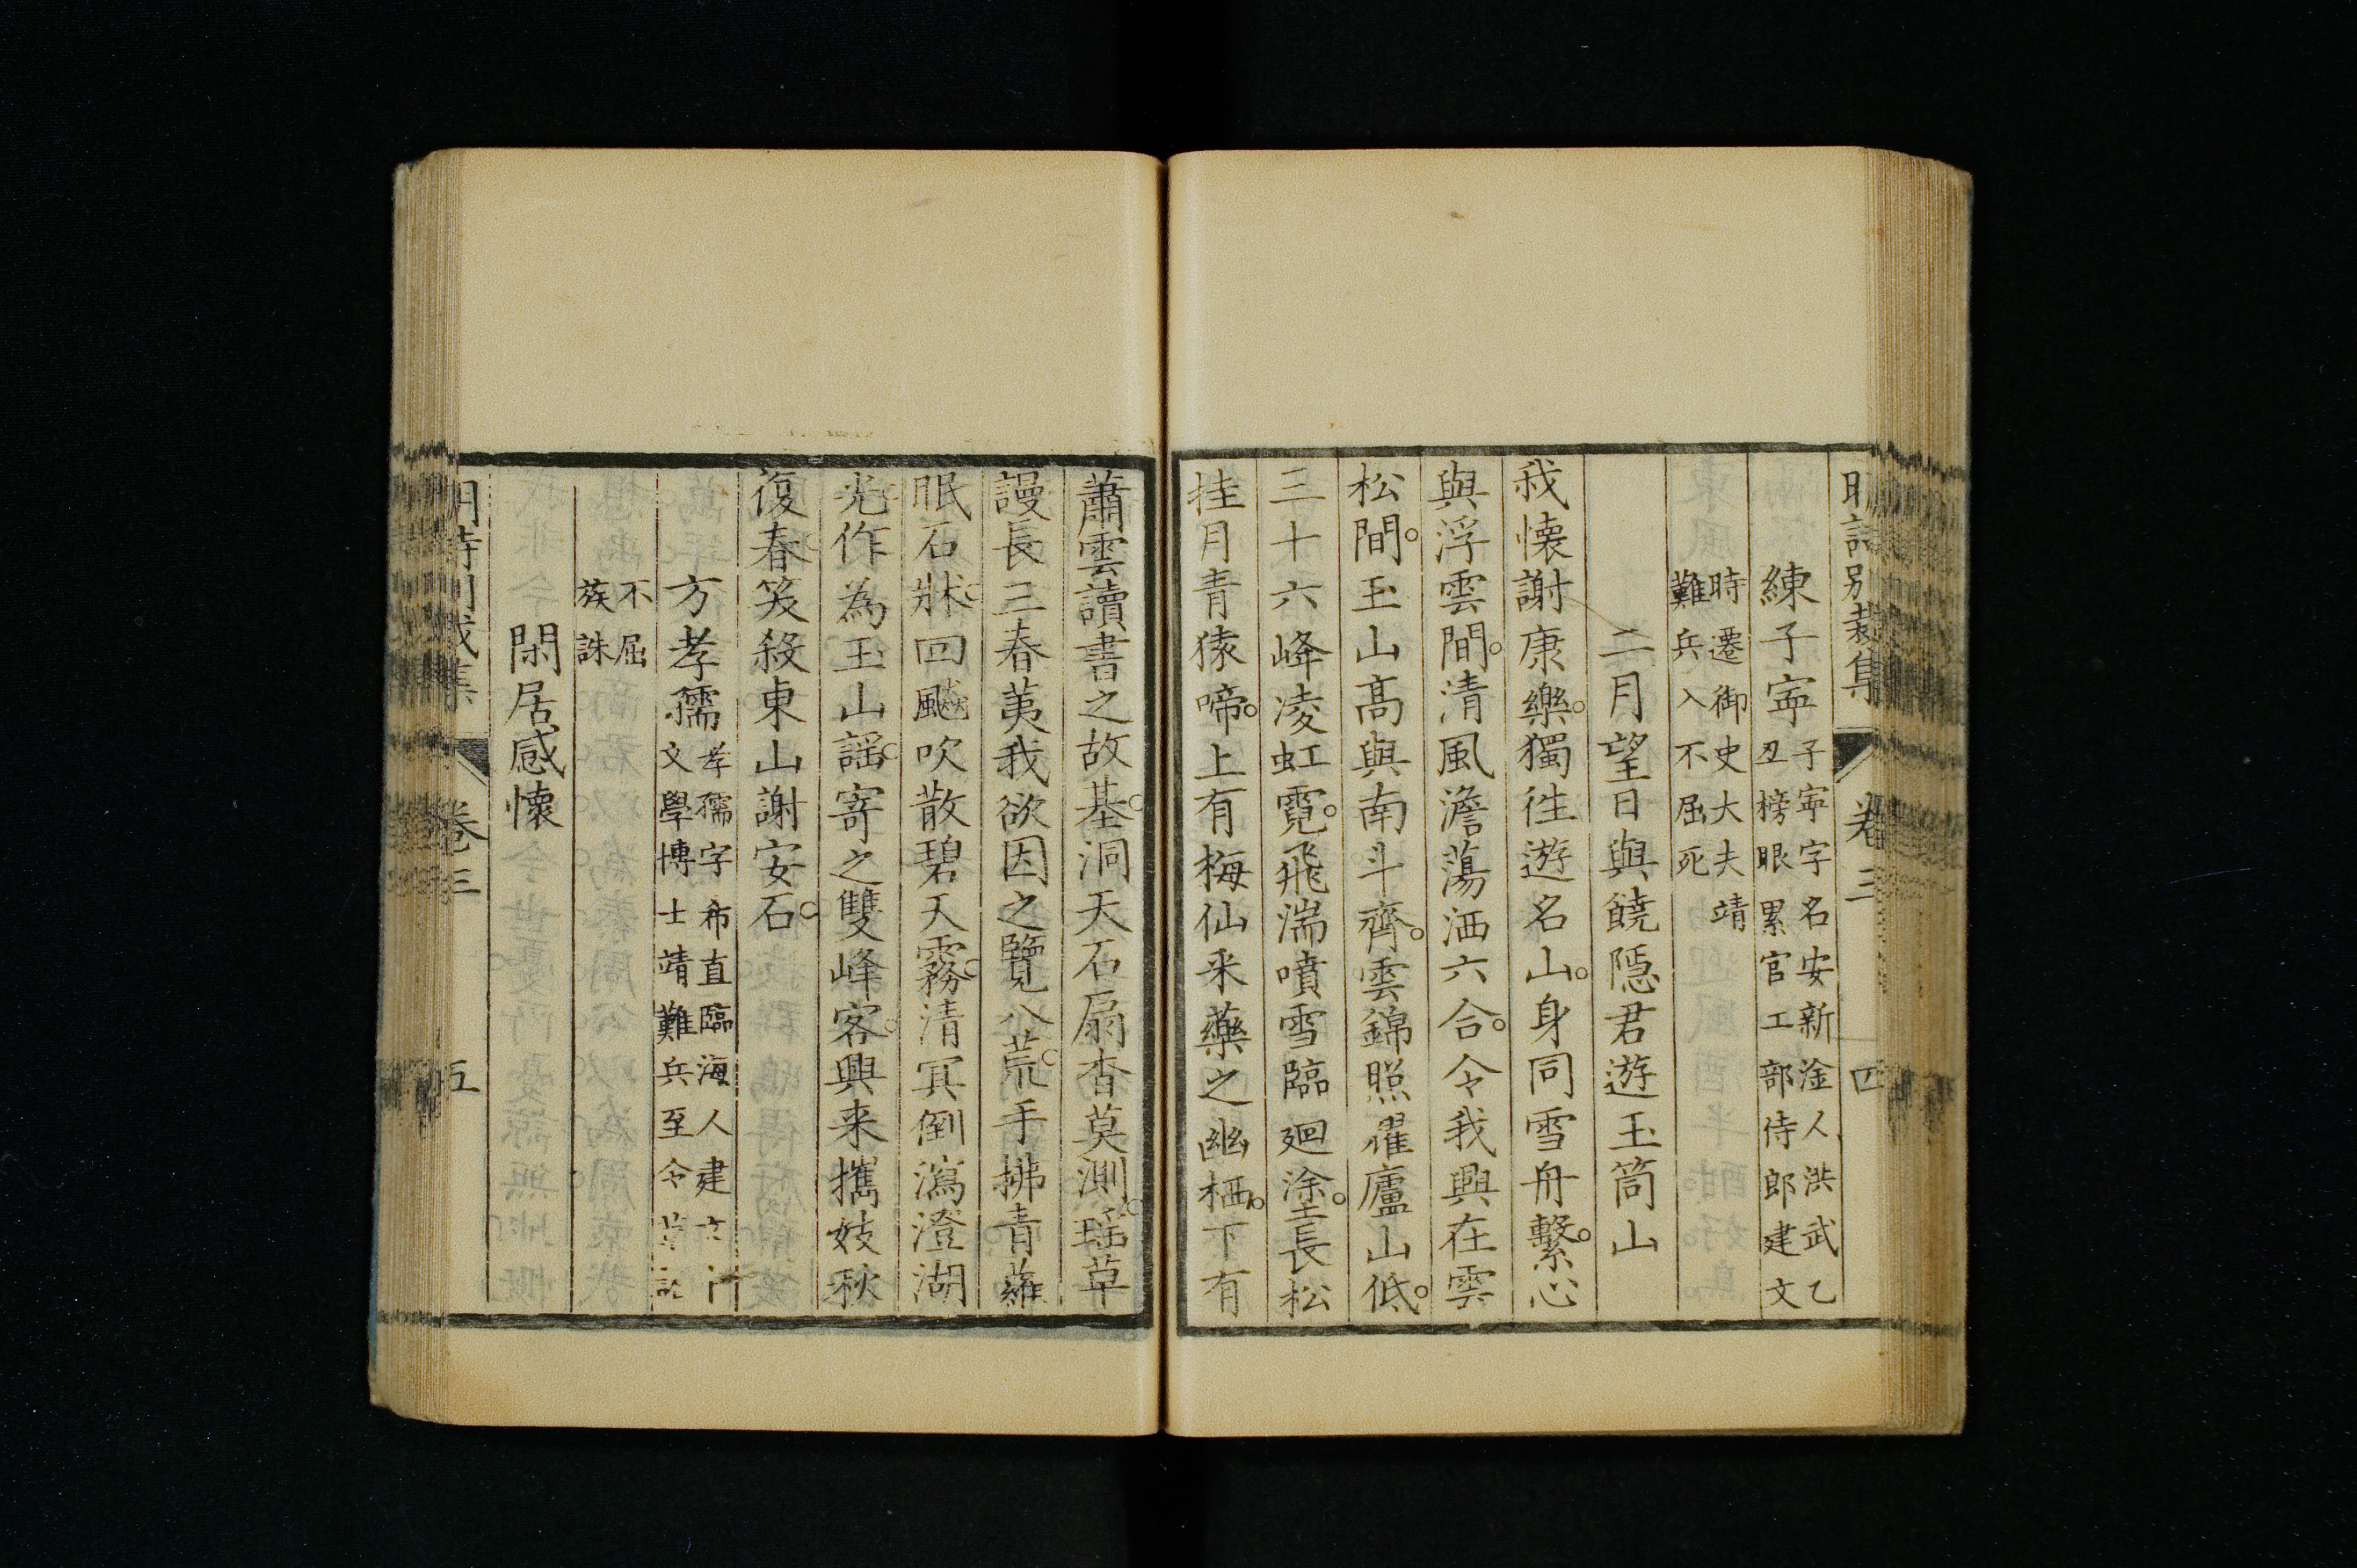 明詩別裁集 卷三 四
練子寧 子寧字名安新淦人洪武乙
丑榜眼累官工部侍郎建文
時遷御史大夫靖
難兵入不屈死
二月望日與饒隱君遊玉筒山
我懷謝康樂。獨往遊名山。身同雪舟繫。心
與浮雲間。清風澹蕩洒六合。令我興在雲
松間。玉山高與南斗齊。雲錦照耀廬山低。
三十六峰凌虹霓。飛湍噴雪臨迴塗。長松
挂月青猿啼。上有梅仙采藥之幽栖。下有
蕭雲讀書之故基。洞天石扇杳莫測。瑤草
謾長三春荑。我欲因之覽八荒。手拂青蘿
眠石牀。回飈吹散碧天霧。清冥倒瀉澄湖
光。作為玉山謡。寄之雙峰客。興来攜妓秋
復春。笑殺東山謝安石。
方孝孺 孝孺字希直臨海人建文
文學博士靖難兵至令草詔
不屈
族誅
閑居感懷
明詩別裁集 卷三 五